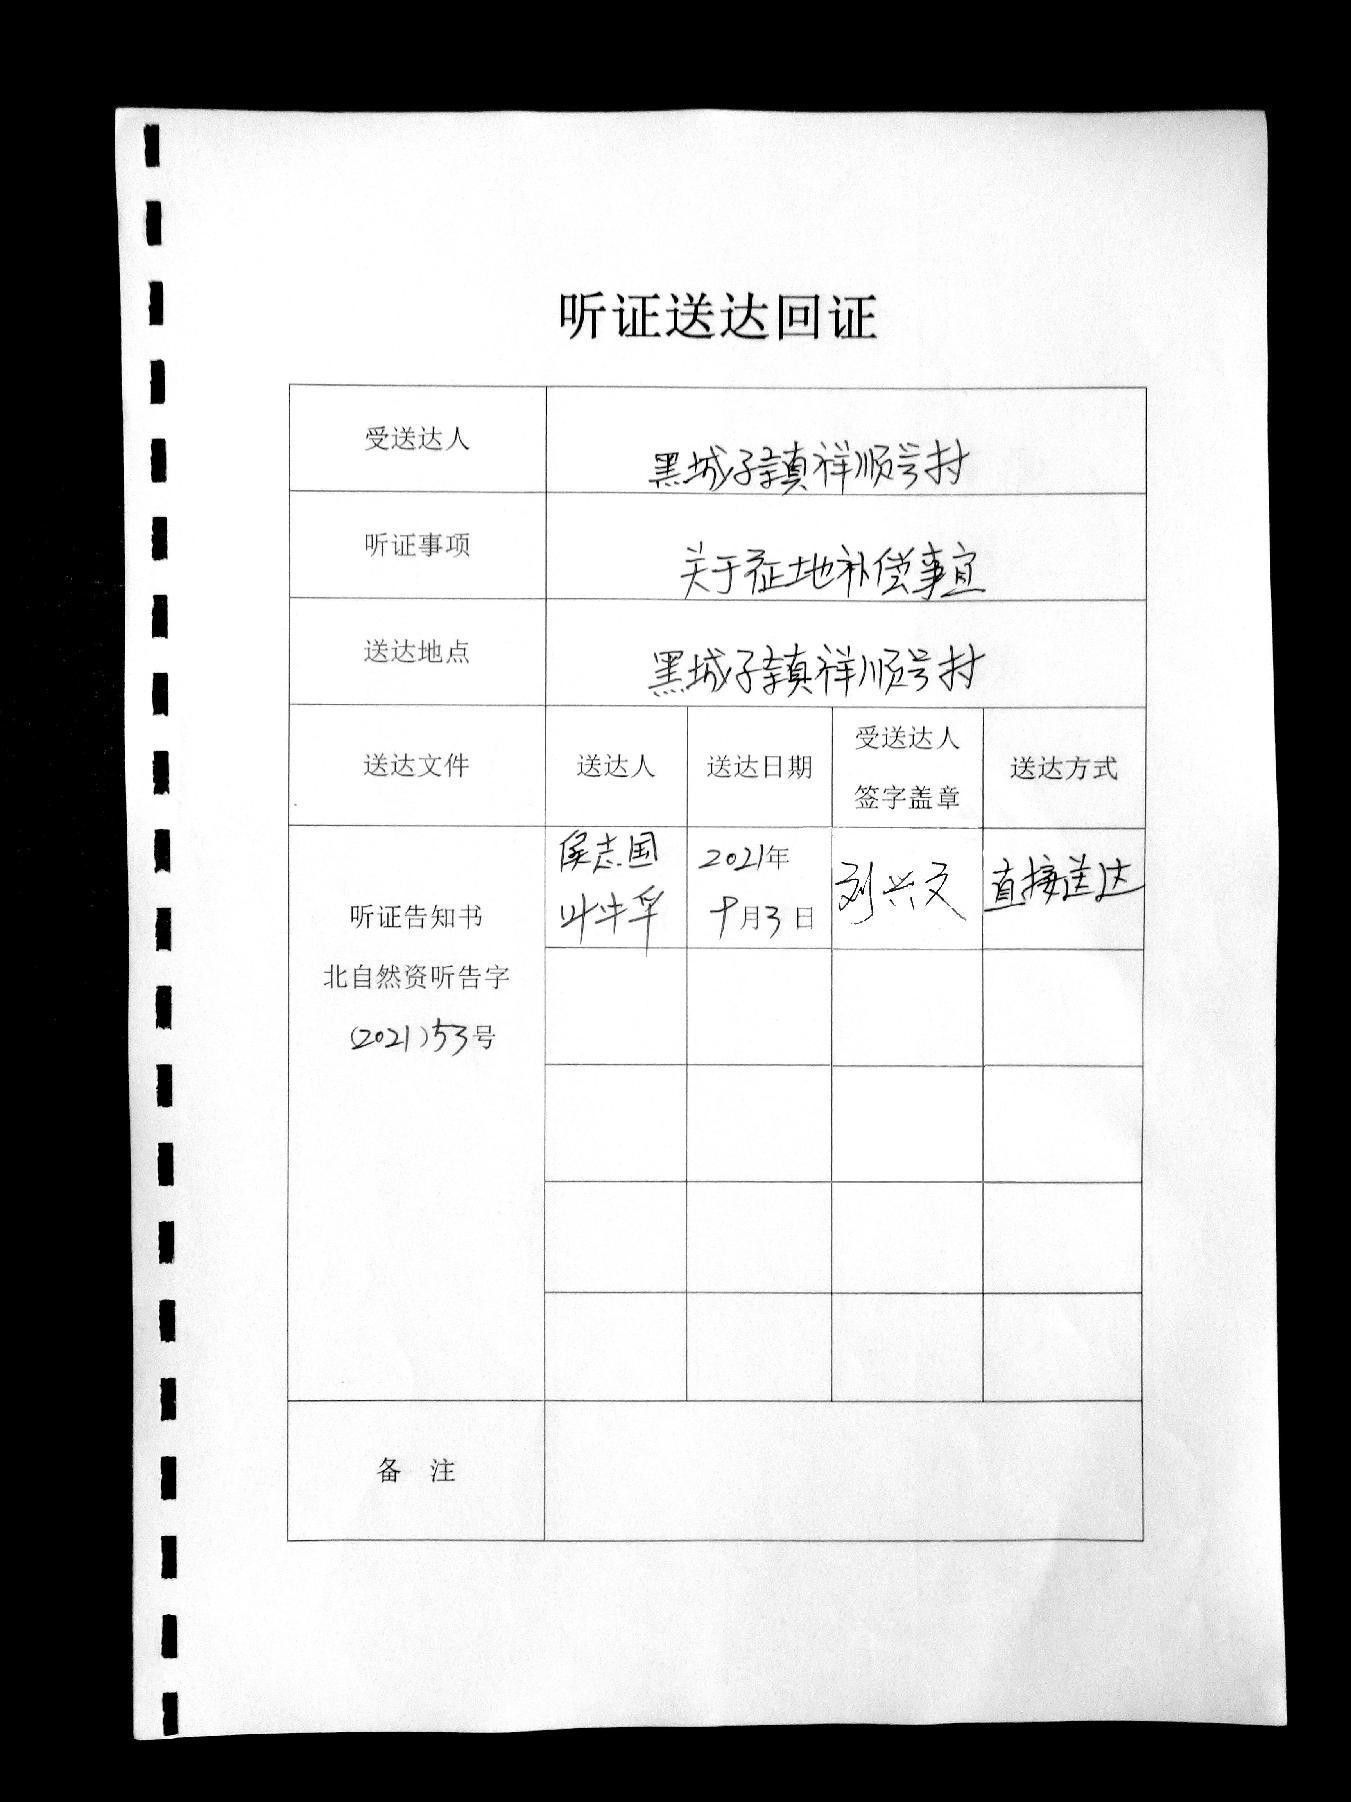 听证送达回证
受送达人
黑城子镇祥顺号村
听证事项
关于征地补偿事宜
送达地点
黑城子镇祥顺号村
送达文件
送达人
送达日期
受送达人
签字盖章
送达方式
听证告知书
北自然资听告字
(2021)53号
侯志国
2021年
十月3日
刘兴文
直接送达
备 注